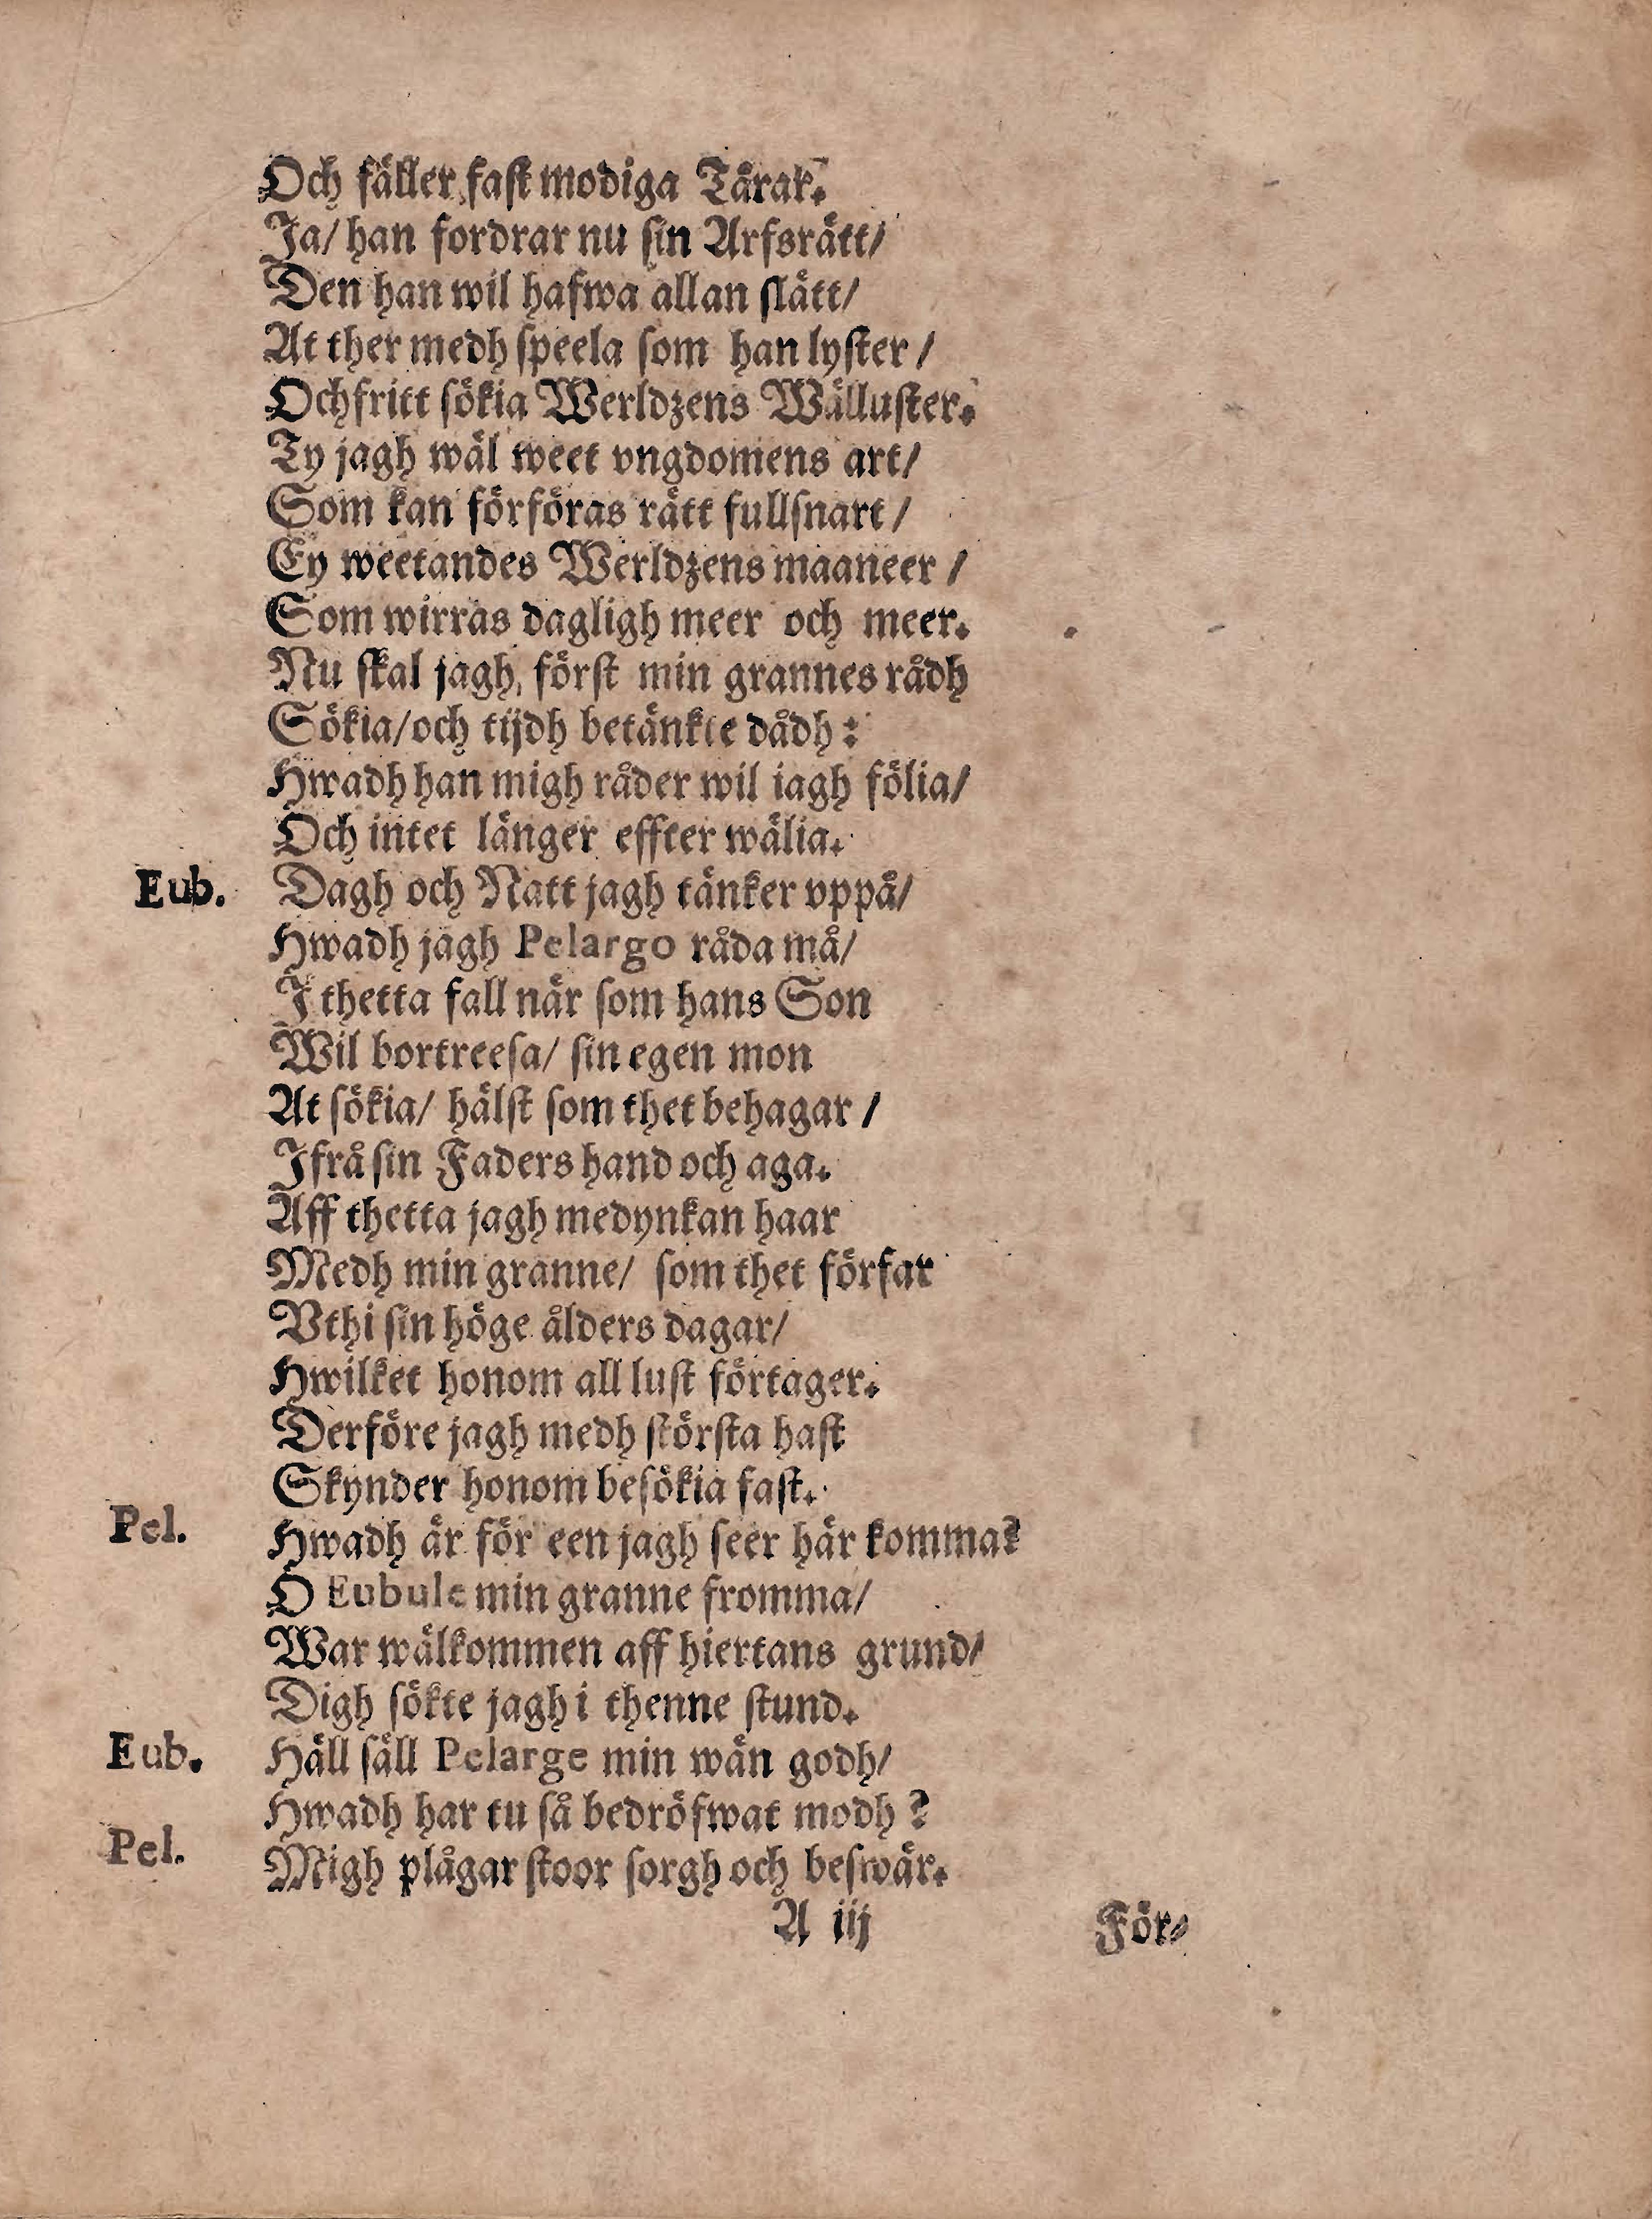 Och fäller fast modiga Tårar.
Ja/ han fordrar nu sin Arfsrätt/
Den han wil hafwa allan slätt/
At ther medh speela som han lyster /
Och fritt sökia Werldzens Wälluster.
Ty jagh wäl weet vngdomens art/
Som kan förföras rätt fullsnart /
Ey weetandes Werldzens maaneer /
Som wirras dagligh meer och meer.
Nu skal jagh först min grannes rådh
Sökia/ och tijdh betänkte dådh:
Hwadh han migh råder wil iagh fölia/
Och intet länger effter wälia.
Eub. Dagh och Natt jagh tänker vppå/
Hwadh jagh Pelargo råda må/
I thetta fall när som hans Son
Wil bortreesa/ sin egen mon
At sökia/ hälst som thet behagar /
Ifrå sin Faders hand och aga.
Aff thetta jagh medynkan haar
Medh min granne/ som thet förfar
Vthi sin höge ålders dagar/
Hwilket honom all lust förtager.
Derföre jagh medh största hast
Skynder honom besökia fast.
Pel. Hwadh är för een jagh seer här komma?
O Eubule min granne fromma/
War wälkommen aff hiertans grund/
Digh sökte jagh i thenne stund.
Eub. Häll säll Pelarge min wän godh/
Hwadh har tu så bedröfwat modh ?
Pel. Migh plågar stoor sorgh och beswär.
A iij För-